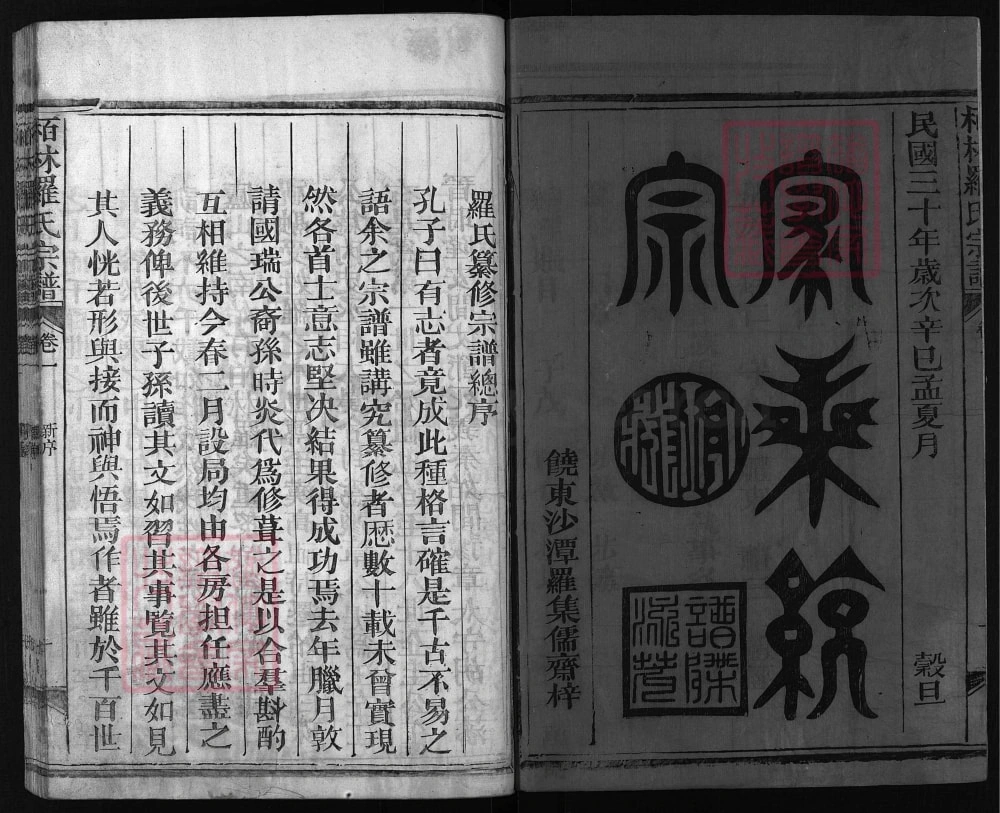 民國三十年歲次辛巳孟夏月
穀旦
家乘統
宗
譜牒流芳
饒東沙潭羅集儒齋梓
羅氏纂修宗譜總序
孔子曰有志者竟成此種格言確是千古不易之
語余之宗譜雖講究纂修者歷數十載未曾實現
然各首士意志堅決結果得成功焉去年臘月敦
請國瑞公裔孫時炎代爲修葺之是以合羣斟酌
互相維持今春二月設局均由各房担任應盡之
義務俾後世子孫讀其文如習其事覽其文如見
其人恍若形與接而神與悟焉作者雖於千百世
栢林羅氏宗譜
卷一
新序